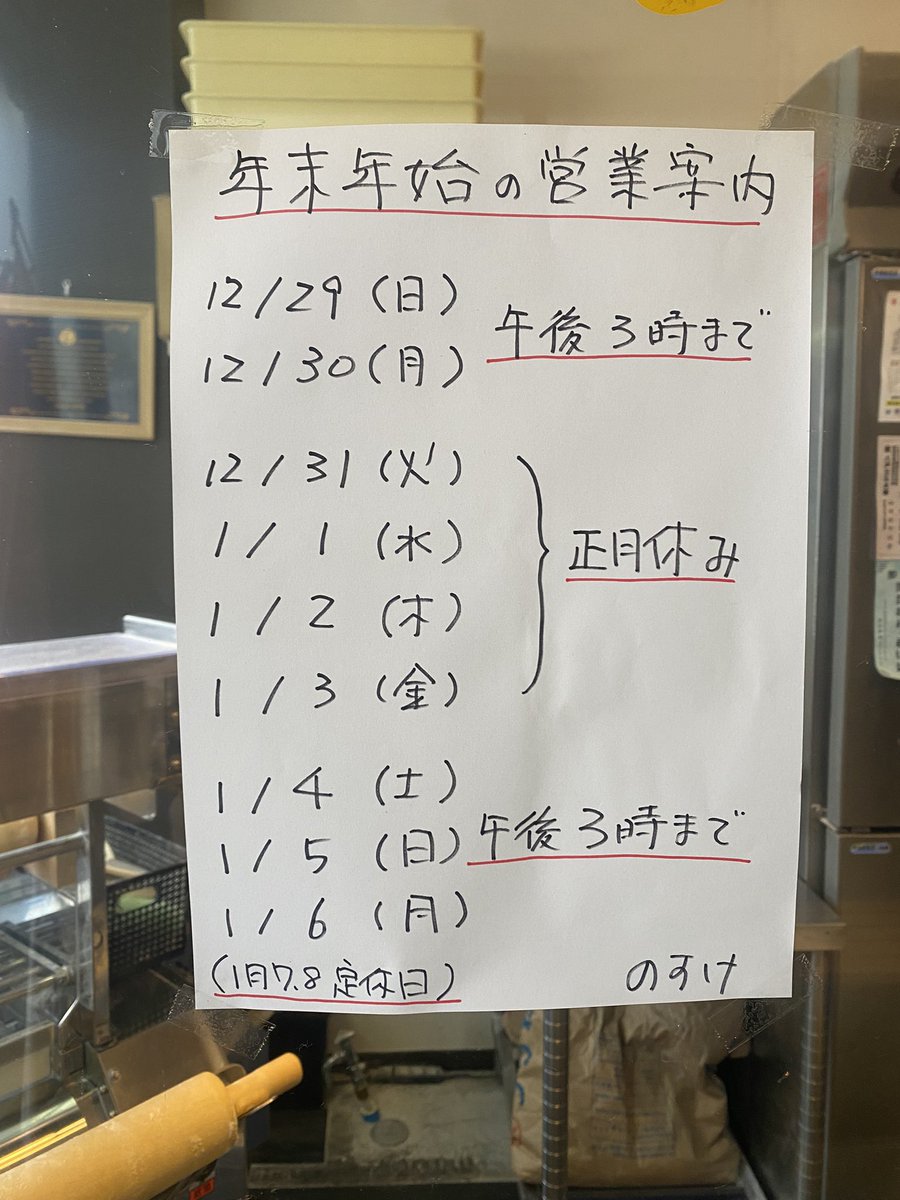 年末年始の営業案内
12/29(日)
12/30(月)
午後3時まで
12/31(火)
1/1(水)
1/2(木)
1/3(金)
正月休み
1/4(土)
1/5(日)
1/6(月)
午後3時まで
(1月7.8定休日)
のすけ